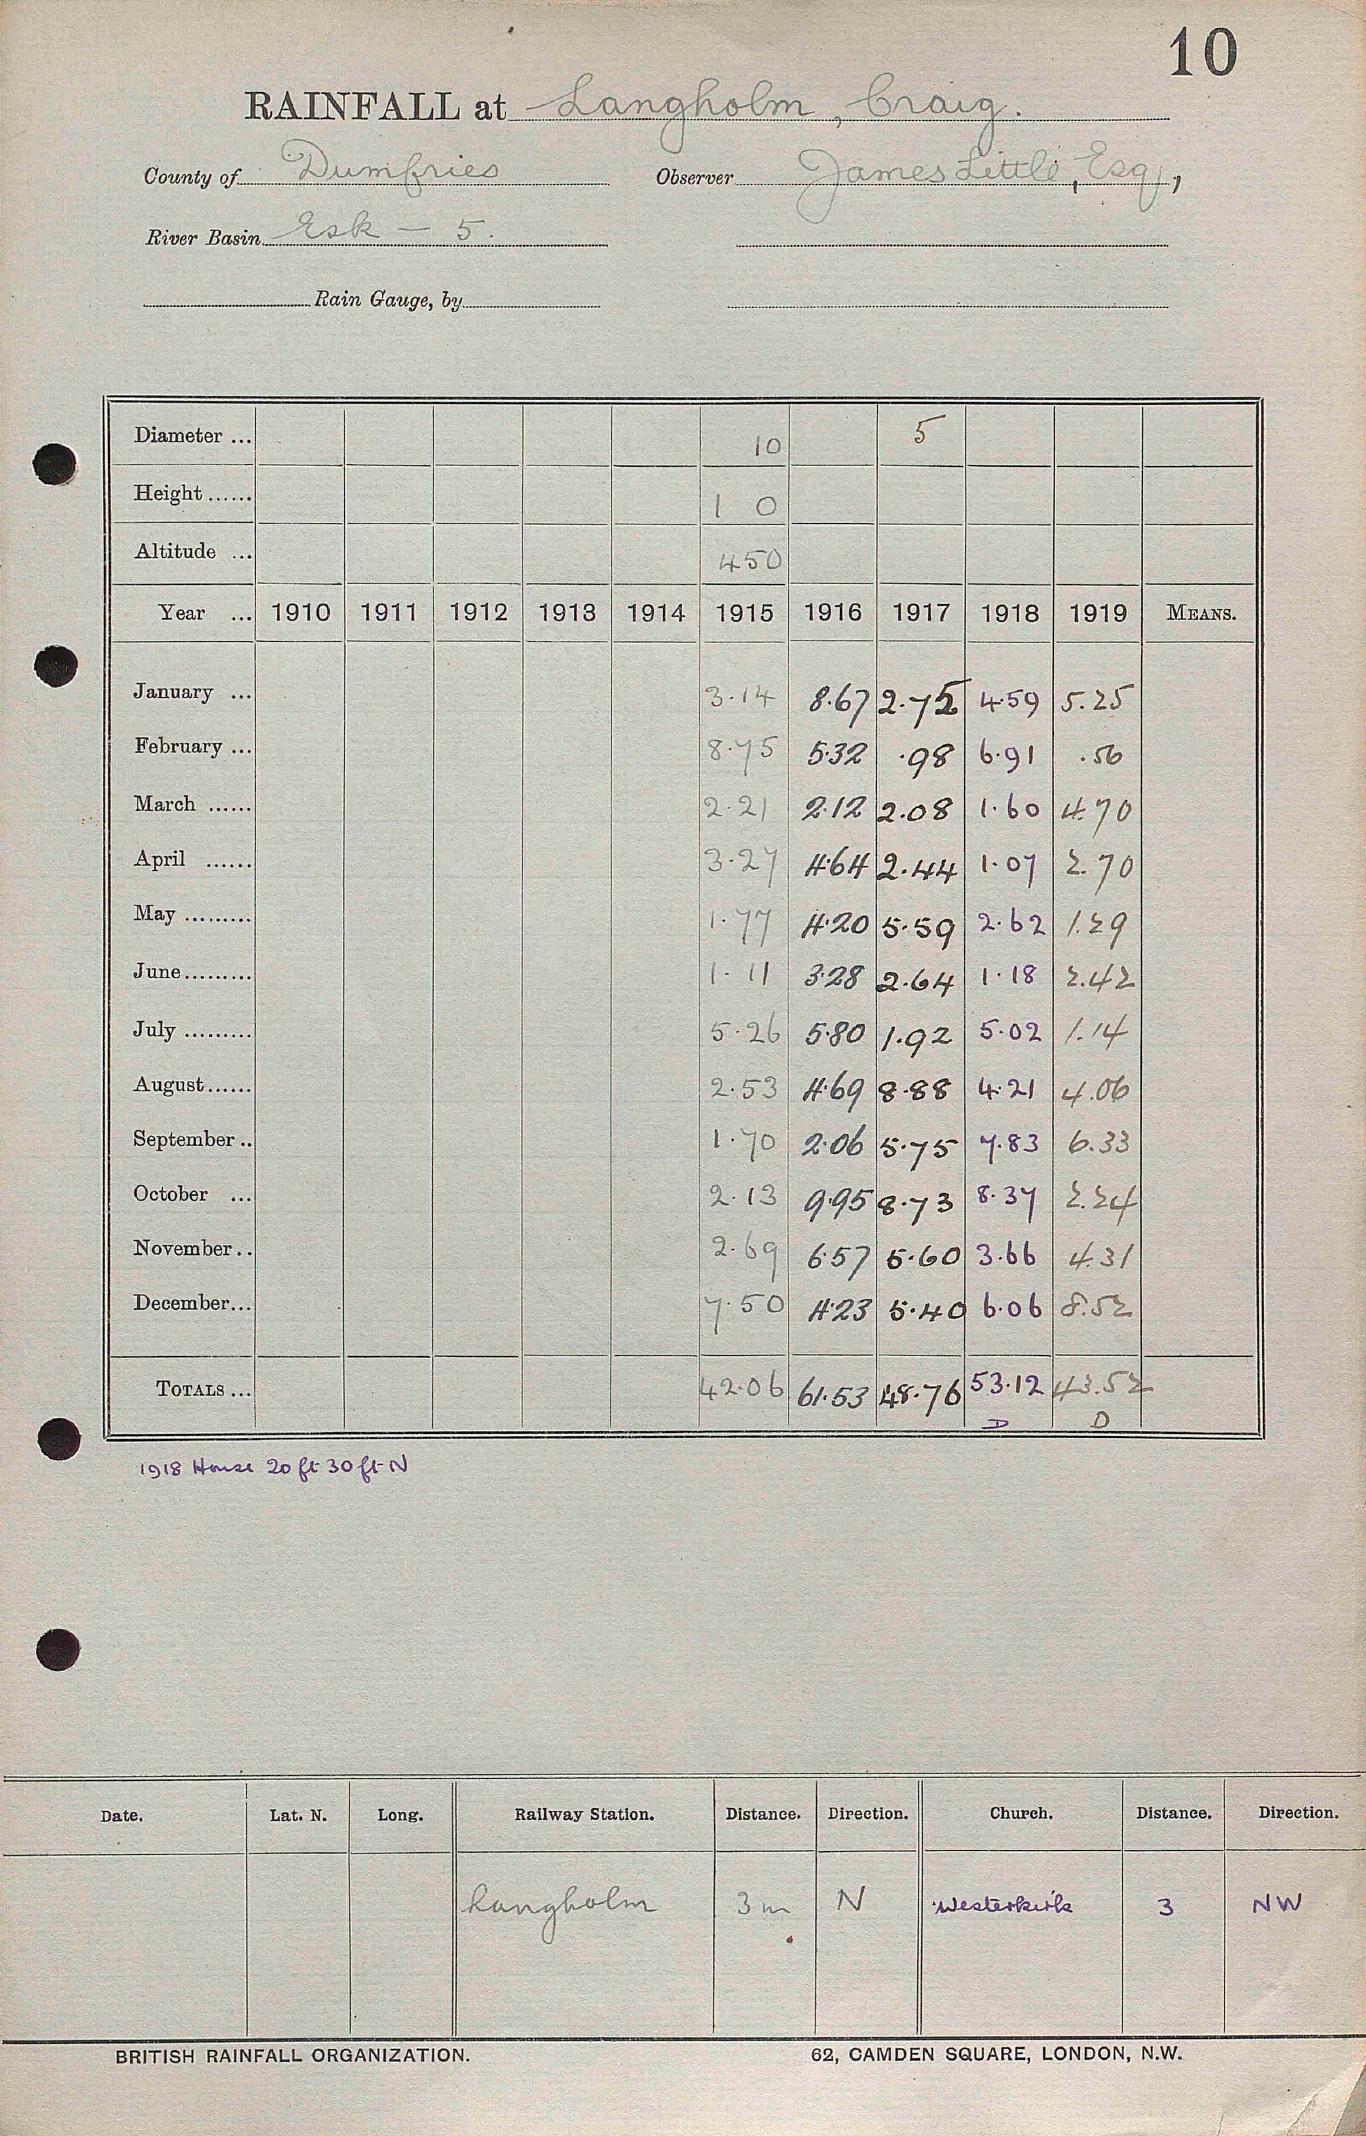 10
RAINFALL at Langholm, Craig.
County of Dumfries Observer James Little, Esq.,
River Basin Esk — 5.
Rain Gauge, by
Diameter ... 10 5
Height ...... 1 0
Altitude ... 450
Year ... 1910 1911 1912 1913 1914 1915 1916 1917 1918 1919 MEANS.
January ... 3.14 8.67 2.75 4.59 5.25
February ... 8.75 5.32 .98 6.91 .56
March ...... 2.21 2.12 2.08 1.60 4.70
April ...... 3.27 4.64 2.44 1.07 2.70
May ......... 1.77 4.20 5.59 2.62 1.29
June ......... 1.11 3.28 2.64 1.18 2.42
July ......... 5.26 5.80 1.92 5.02 1.14
August ...... 2.53 4.69 8.88 4.21 4.06
September .. 1.70 2.06 5.75 7.83 6.33
October ... 2.13 9.95 8.73 8.37 2.24
November .. 2.69 6.57 5.60 3.66 4.31
December ... 7.50 4.23 5.40 6.06 8.52
TOTALS ... 42.06 61.53 48.76 53.12 43.52
D D
1918 House 20 ft 30 ft N
Date. Lat. N. Long. Railway Station. Distance. Direction. Church. Distance. Direction.
Langholm 3 m N Westerkirk 3 NW
BRITISH RAINFALL ORGANIZATION. 62, CAMDEN SQUARE, LONDON, N.W.